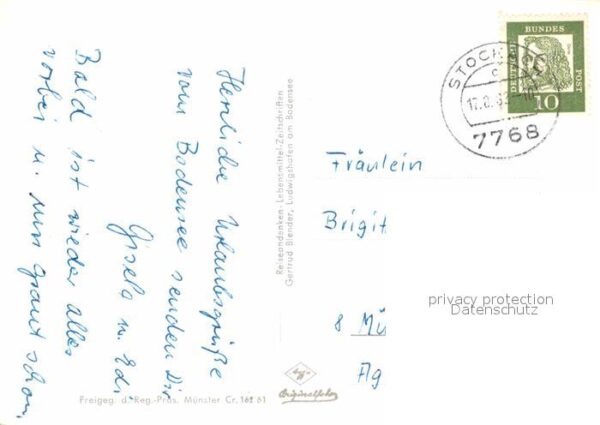 Herzliche Urlaubsgrüße
vom Bodensee senden Dir
Gisela u. Edi
Bald ist wieder alles
vorbei u. uns graut schon.
Reiseandenken-Lebensmittel-Zeitschriften
Gertrud Blender, Ludwigshafen am Bodensee
DEUTSCHE
BUNDES
POST
10
STOCK
c
17.8.6
7768
Fräulein
Brigit
8 Mü
Ag
privacy protection
Datenschutz
Originalfoto
Freigeg. d. Reg.-Präs. Münster Cr. 162 61